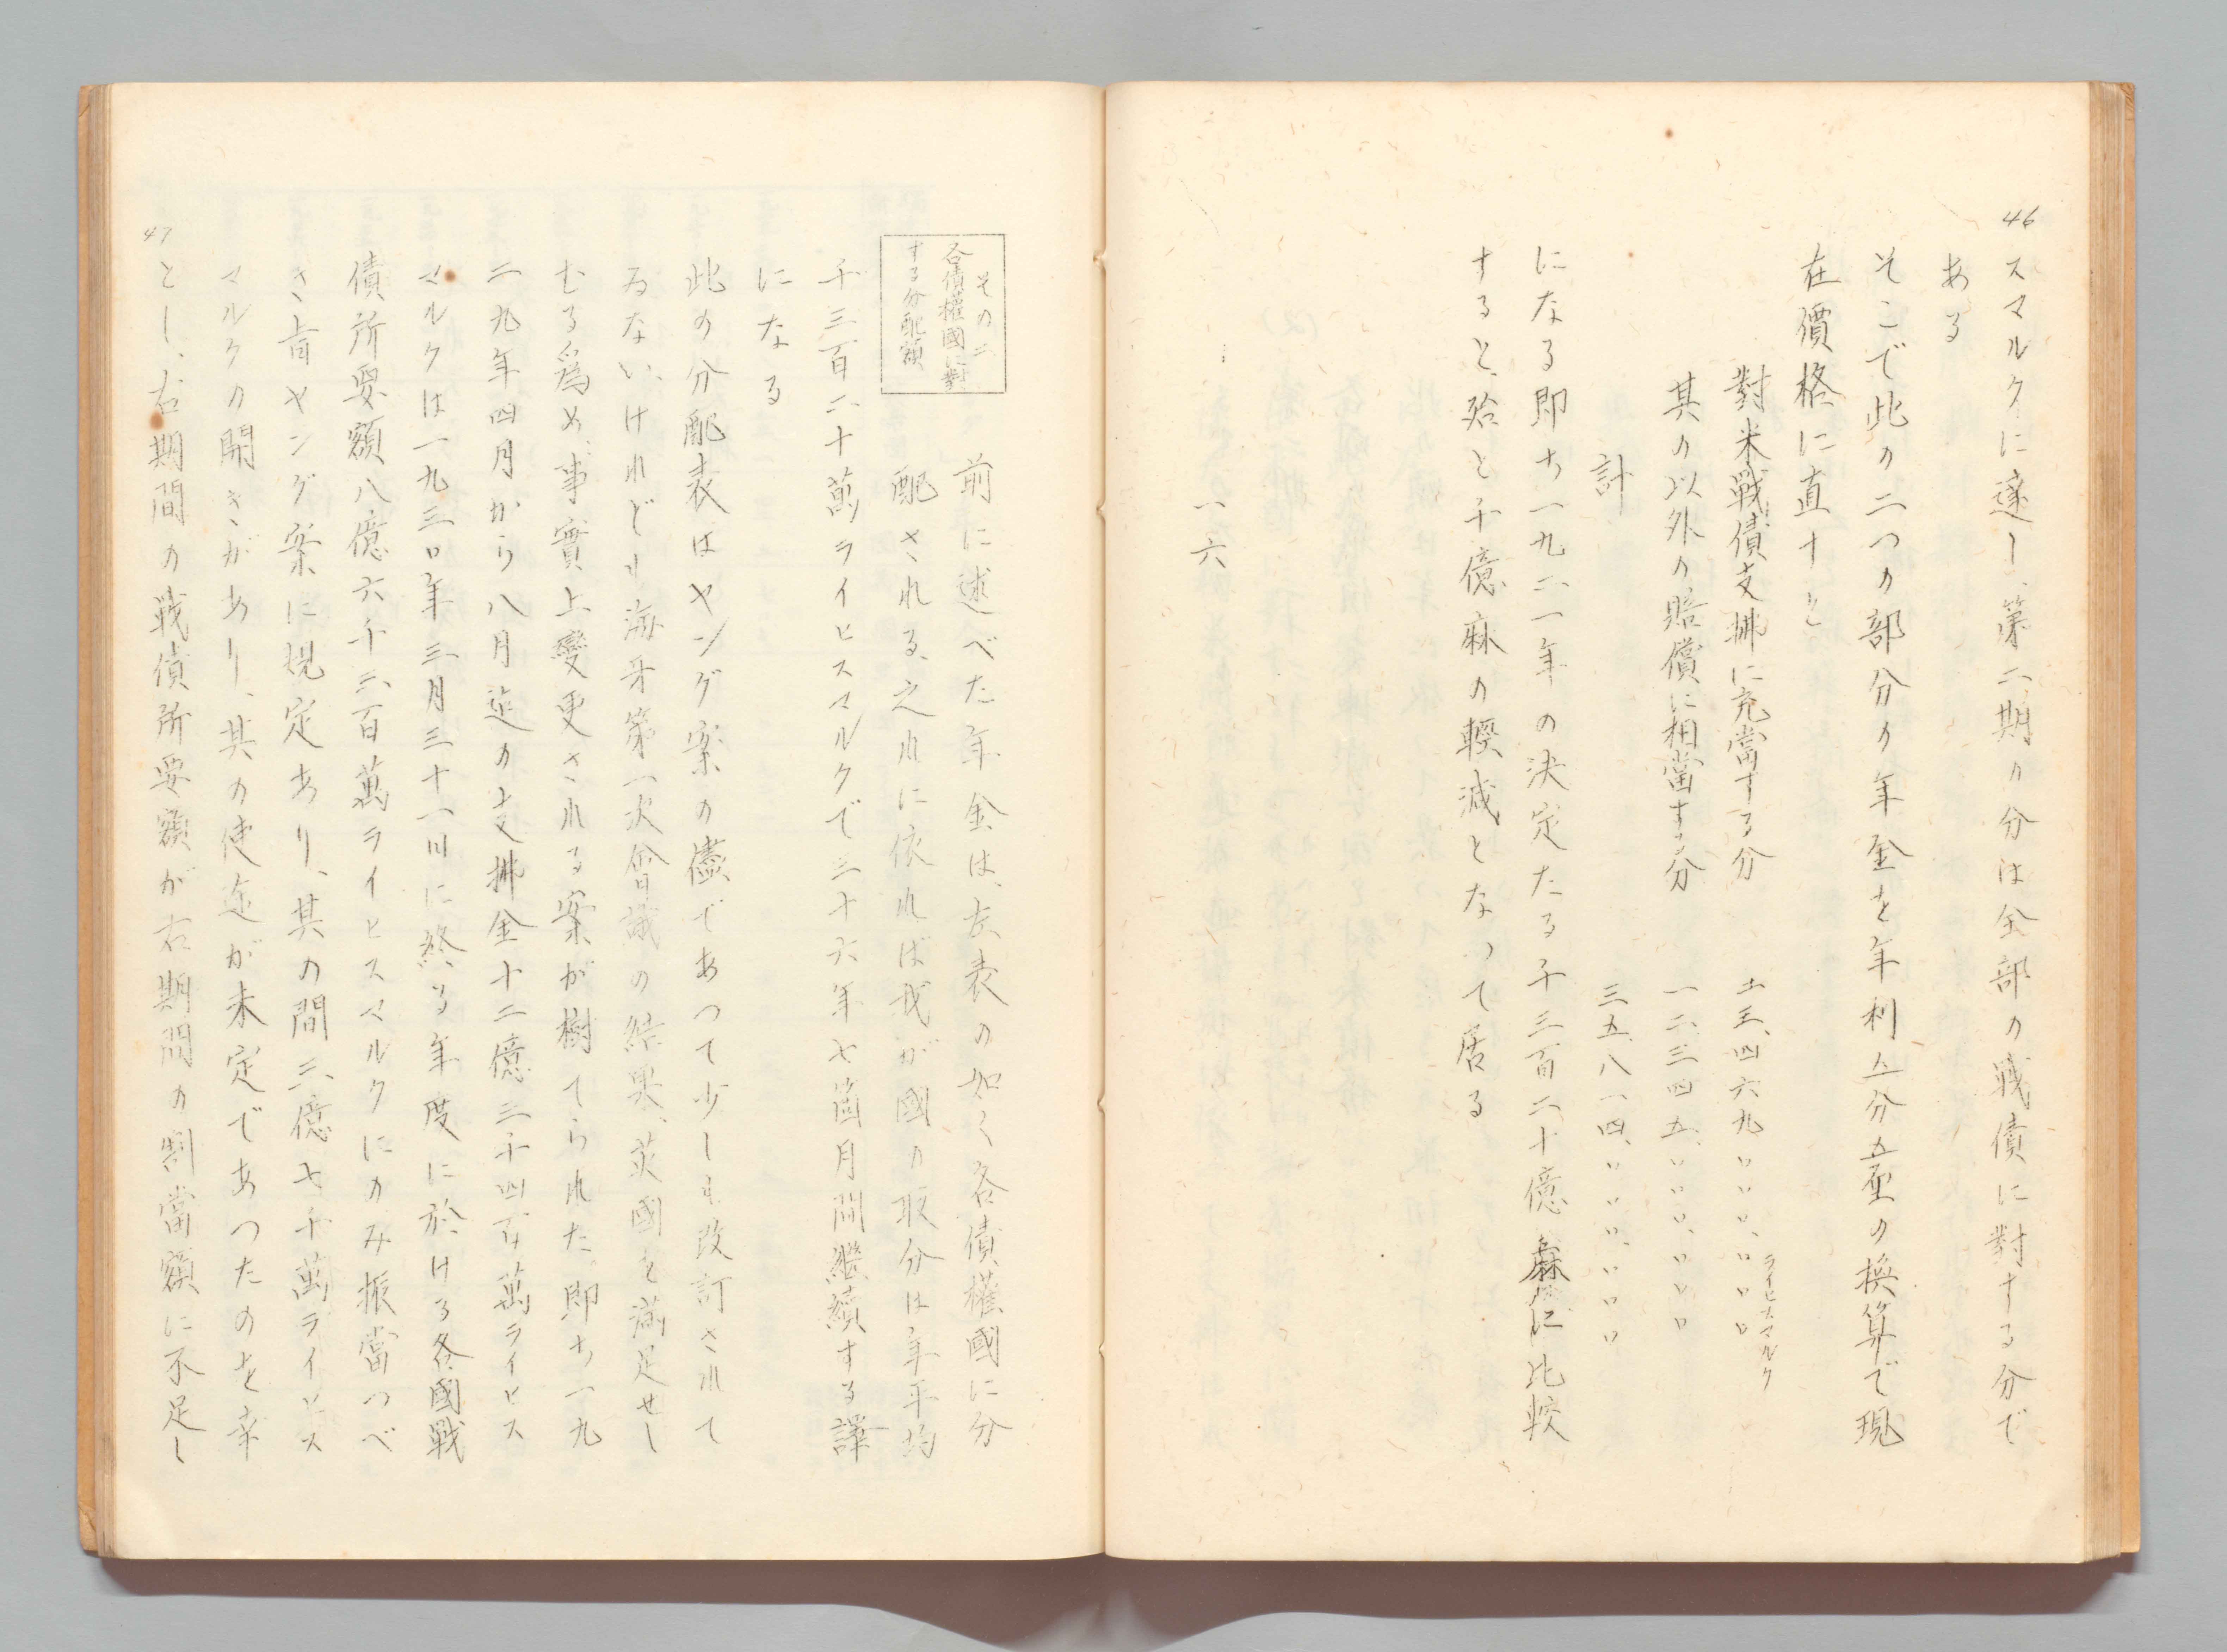 46
スマルクに達し、第二期の分は全部の戦債に對する分で
ある
そこで此の二つの部分の年金を年利五分五厘の換算で現
在價格に直すと
對米戰債支拂に充當する分
ライヒスマルク
其の以外の賠償に相當する分 一二、三四五、〇〇〇、〇〇〇
計 三五、八一四、〇〇〇、〇〇〇
になる即ち一九二一年の決定たる千三百二十億麻に比較
すると、殆と千億麻の輕減となつて居る
一六
その二
各債權國に對
する分配額
前に述べた年金は、左表の如く各債權國に分
配される、之れに依れば我が國の取分は年平均
千三百二十萬ライヒスマルクで三十六年七箇月間繼續する譯
になる
此の分配表はヤング案の儘であつて少しも改訂されて
ゐない、けれども海牙第一次會議の結果、英國を滿足せし
むる爲め、事實上變更される案が樹てられた、即ち一九
二九年四月から八月迄の支拂金十二億三千四百萬ライヒス
マルクは一九三〇年三月三十一日に終る年度に於ける各國戰
債所要額八億六千三百萬ライヒスマルクにのみ振當つべ
き旨ヤング案に規定あり、其の間三億七千萬ライヒス
マルクの開きがあり、其の使途が未定であつたのを幸
47
とし、右期間の戦債所要額が右期間の割當額に不足し